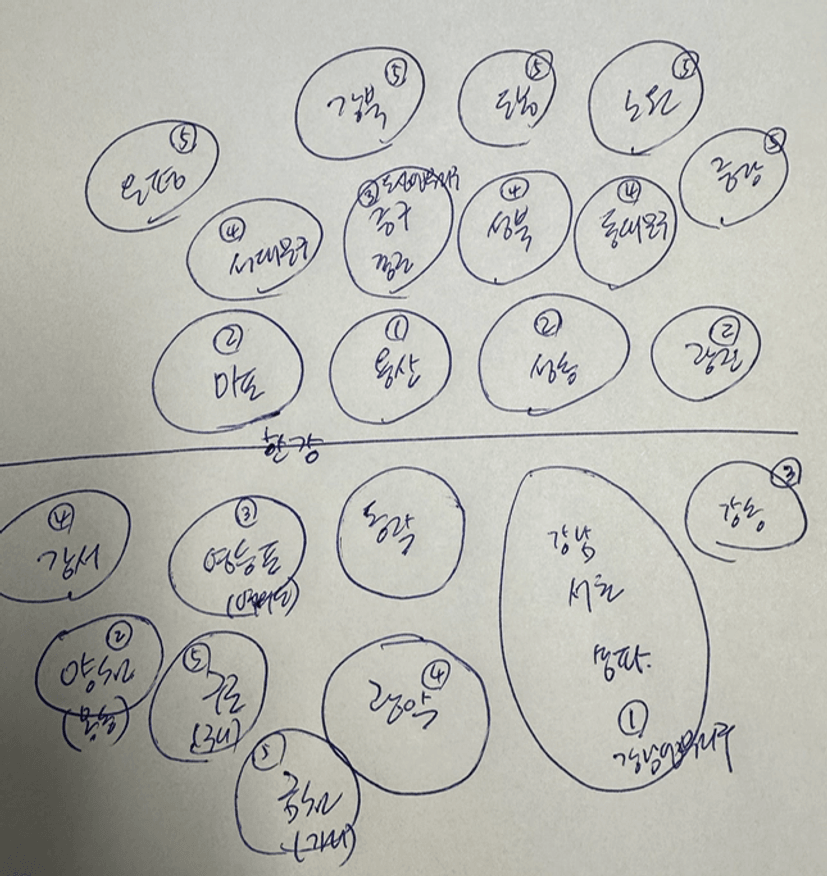 ⑤
강북
⑤
도봉
⑤
노원
⑤
은평
⑤
중랑
④
서대문구
③ 도심업무지구
중구
종로
④
성북
④
동대문구
②
마포
①
용산
②
성동
②
광진
한강
④
강서
③
영등포
(여의도)
동작
강남
서초
송파
①
강남업무지구
③
강동
②
양천
(목동)
⑤
구로
④
관악
⑤
금천